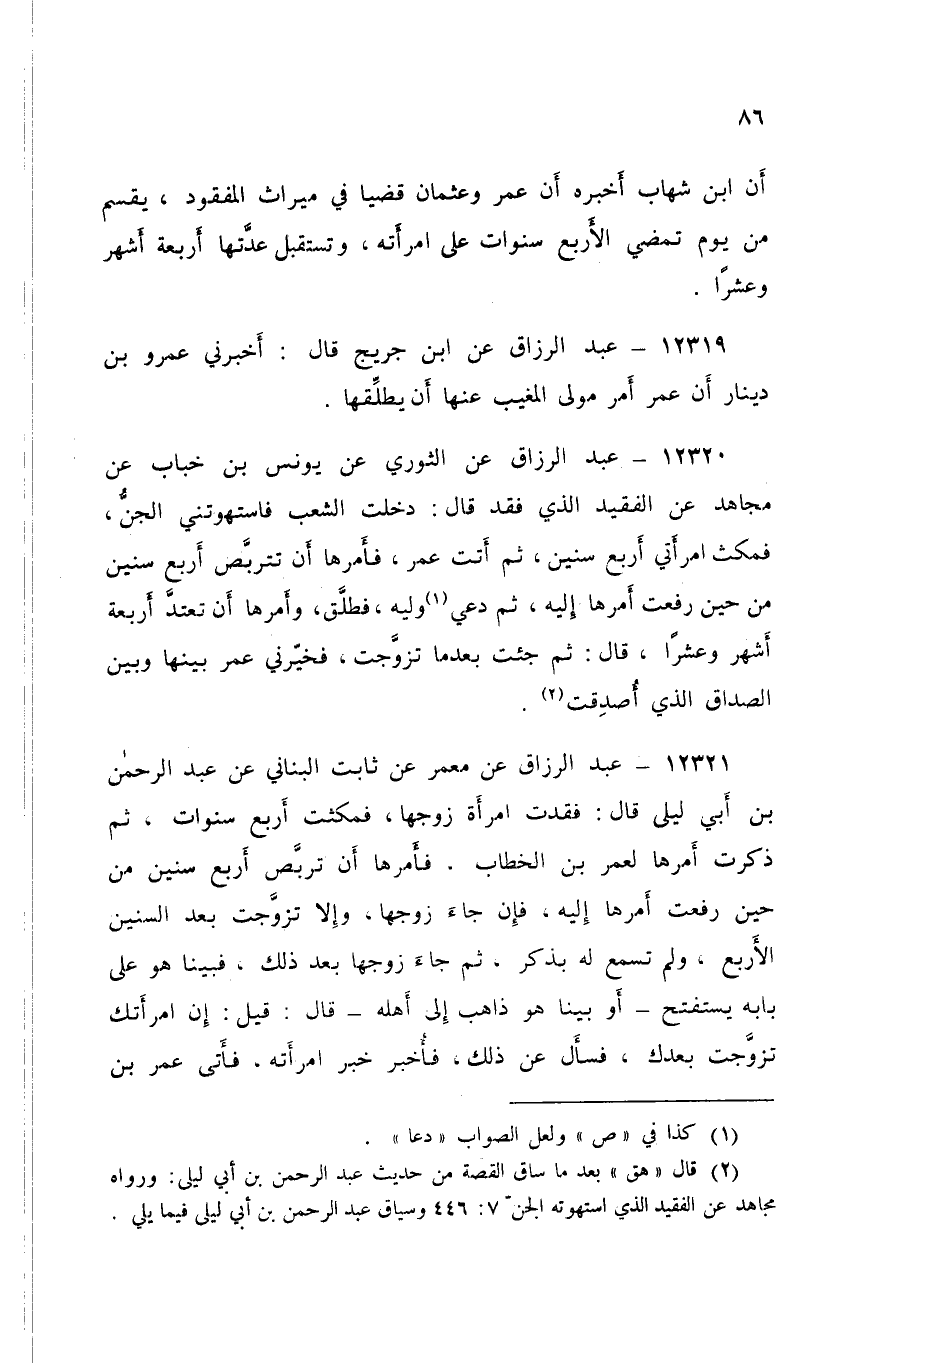 ٨٦
أَن ابن شهاب أَخبره أَن عمر وعثمان قضيا في ميراث المفقود ، يقسم
من يوم تمضي الأَربع سنوات على امرأَته ، وتستقبل عدَّتها أَربعة أَشهر
وعشرًا .
١٢٣١٩ – عبد الرزاق عن ابن جريج قال : أَخبرني عمرو بن
دينار أَن عمر أَمر مولى المغيب عنها أَن يطلِّقها .
١٢٣٢٠ – عبد الرزاق عن الثوري عن يونس بن خباب عن
مجاهد عن الفقيد الذي فقد قال : دخلت الشعب فاستهوتني الجنُّ ،
فمكث امرأَتي أَربع سنين ، ثم أَتت عمر ، فأَمرها أَن تتربَّص أَربع سنين
من حين رفعت أَمرها إليه ، ثم دعي(١) وليه ، فطلَّق ، وأَمرها أَن تعتدَّ أَربعة
أَشهر وعشرًا ، قال : ثم جئت بعدما تزوَّجت ، فخيّرني عمر بينها وبين
الصداق الذي أُصدِقت(٢) .
١٢٣٢١ – عبد الرزاق عن معمر عن ثابت البناني عن عبد الرحمٰن
بن أَبي ليلى قال : فقدت امرأَة زوجها ، فمكثت أَربع سنوات ، ثم
ذكرت أَمرها لعمر بن الخطاب . فأَمرها أَن تربَّص أَربع سنين من
حين رفعت أَمرها إليه ، فإن جاءَ زوجها ، وإلا تزوَّجت بعد السنين
الأَربع ، ولم تسمع له بذكر . ثم جاءَ زوجها بعد ذلك ، فبينا هو على
بابه يستفتح – أَو بينا هو ذاهب إلى أَهله – قال : قيل : إن امرأَتك
تزوَّجت بعدك ، فسأَل عن ذلك ، فأُخبر خبر امرأَته . فأَتى عمر بن
(١) كذا في «ص» ولعل الصواب «دعا» .
(٢) قال «هق» بعد ما ساق القصة من حديث عبد الرحمن بن أبي ليلى : ورواه
مجاهد عن الفقيد الذي استهوته الجنّ ٧ : ٤٤٦ وسياق عبد الرحمن بن أبي ليلى فيما يلي .